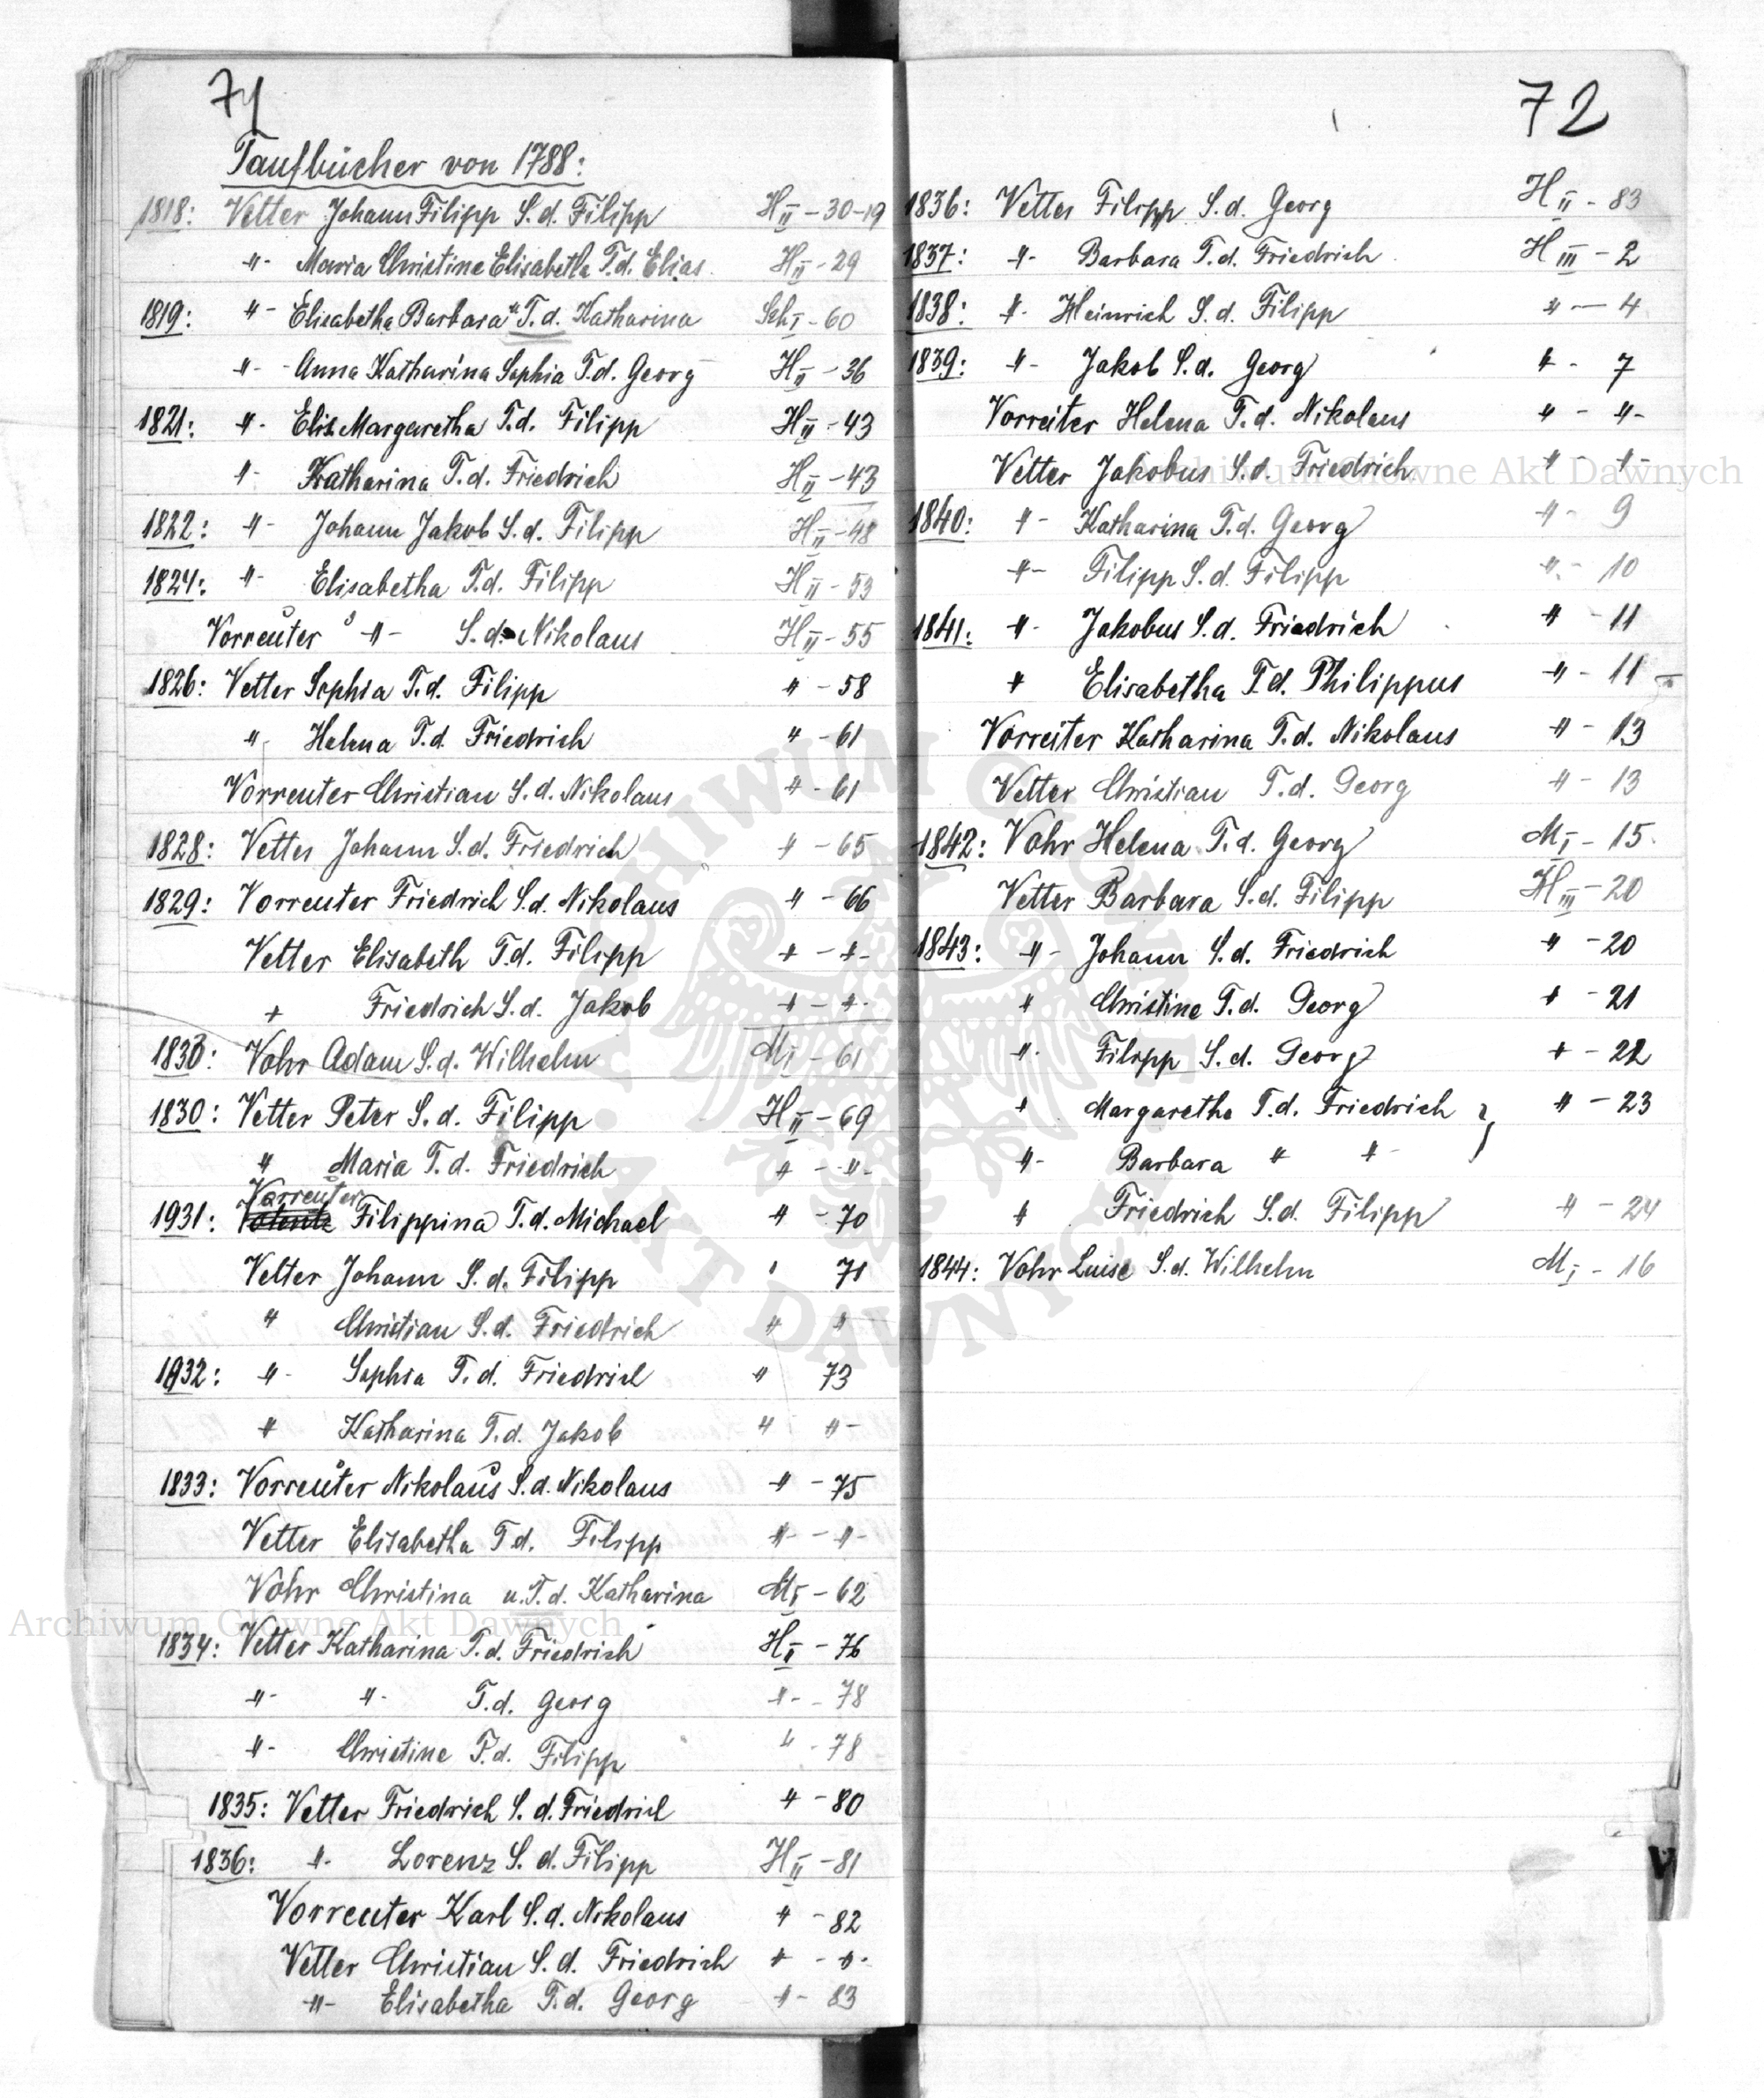 71
Taufbücher von 1788:
1818: Vetter Johann Filipp S.d. Filipp H II - 30-19
-"- Maria Christine Elisabetha T.d. Elias H II - 29
1819: -"- Elisabetha Barbara "T.d. Katharina Sch I - 60
-"- Anna Katharina Sophia T.d. Georg H II - 36
1821: -"- Elis. Margaretha T.d. Filipp H II - 43
-"- Katharina T.d. Friedrich H II - 43
1822: -"- Johann Jakob S.d. Filipp H II - 48
1824: -"- Elisabetha T.d. Filipp H II - 53
Vorreuter -"- S.d. Nikolaus H II - 55
1826: Vetter Sophia T.d. Filipp " - 58
" Helena T.d. Friedrich " - 61
Vorreuter Christian S.d. Nikolaus " - 61
1828: Vetter Johann S.d. Friedrich " - 65
1829: Vorreuter Friedrich S.d. Nikolaus " - 66
Vetter Elisabeth T.d. Filipp " - "-
" Friedrich S.d. Jakob " - "-
1830: Vohr Adam S.d. Wilhelm M I - 61
1830: Vetter Peter S.d. Filipp H II - 69
" Maria T.d. Friedrich " - "-
Vorreuter
1931: Filippina T.d. Michael " - 70
Vetter Johann S.d. Filipp " 71
" Christian S.d. Friedrich " "
1832: -"- Sophia T.d. Friedrich " 73
" Katharina T.d. Jakob " "-
1833: Vorreuter Nikolaus S.d. Nikolaus " - 75
Vetter Elisabetha T.d. Filipp "- - "-
Vohr Christina u. T.d. Katharina M I - 62
1834: Vetter Katharina T.d. Friedrich H II - 76
-"- -"- T.d. Georg "- - 78
-"- Christine T.d. Filipp " - 78
1835: Vetter Friedrich S.d. Friedrich " - 80
1836: -"- Lorenz S.d. Filipp H II - 81
Vorreuter Karl S.d. Nikolaus " - 82
Vetter Christian S.d. Friedrich " - "-
-"- Elisabetha T.d. Georg " - 83
72
1836: Vetter Filipp S.d. Georg H II - 83
1837: -"- Barbara T.d. Friedrich H III - 2
1838: "- Heinrich S.d. Filipp " - 4
1839: -"- Jakob S.d. Georg " - 7
Vorreiter Helena T.d. Nikolaus " - "-
Vetter Jakobus S.d. Friedrich " - "-
1840: "- Katharina T.d. Georg " - 9
"- Filipp S.d. Filipp " - 10
1841: "- Jakobus S.d. Friedrich " - 11
" Elisabetha T.d. Philippus " - 11
Vorreiter Katharina T.d. Nikolaus " - 13
Vetter Christian T.d. Georg " - 13
1842: Vohr Helena T.d. Georg M I - 15
Vetter Barbara S.d. Filipp H III - 20
1843: -"- Johann S.d. Friedrich " - 20
" Christine T.d. Georg " - 21
"- Filipp S.d. Georg " - 22
" Margaretha T.d. Friedrich } " - 23
-"- Barbara " "-
" Friedrich S.d. Filipp " - 24
1844: Vohr Luise S.d. Wilhelm M I - 16
Archiwum Główne Akt Dawnych
Archiwum Główne Akt Dawnych
ARCHIWUM GŁÓWNE AKT DAWNYCH